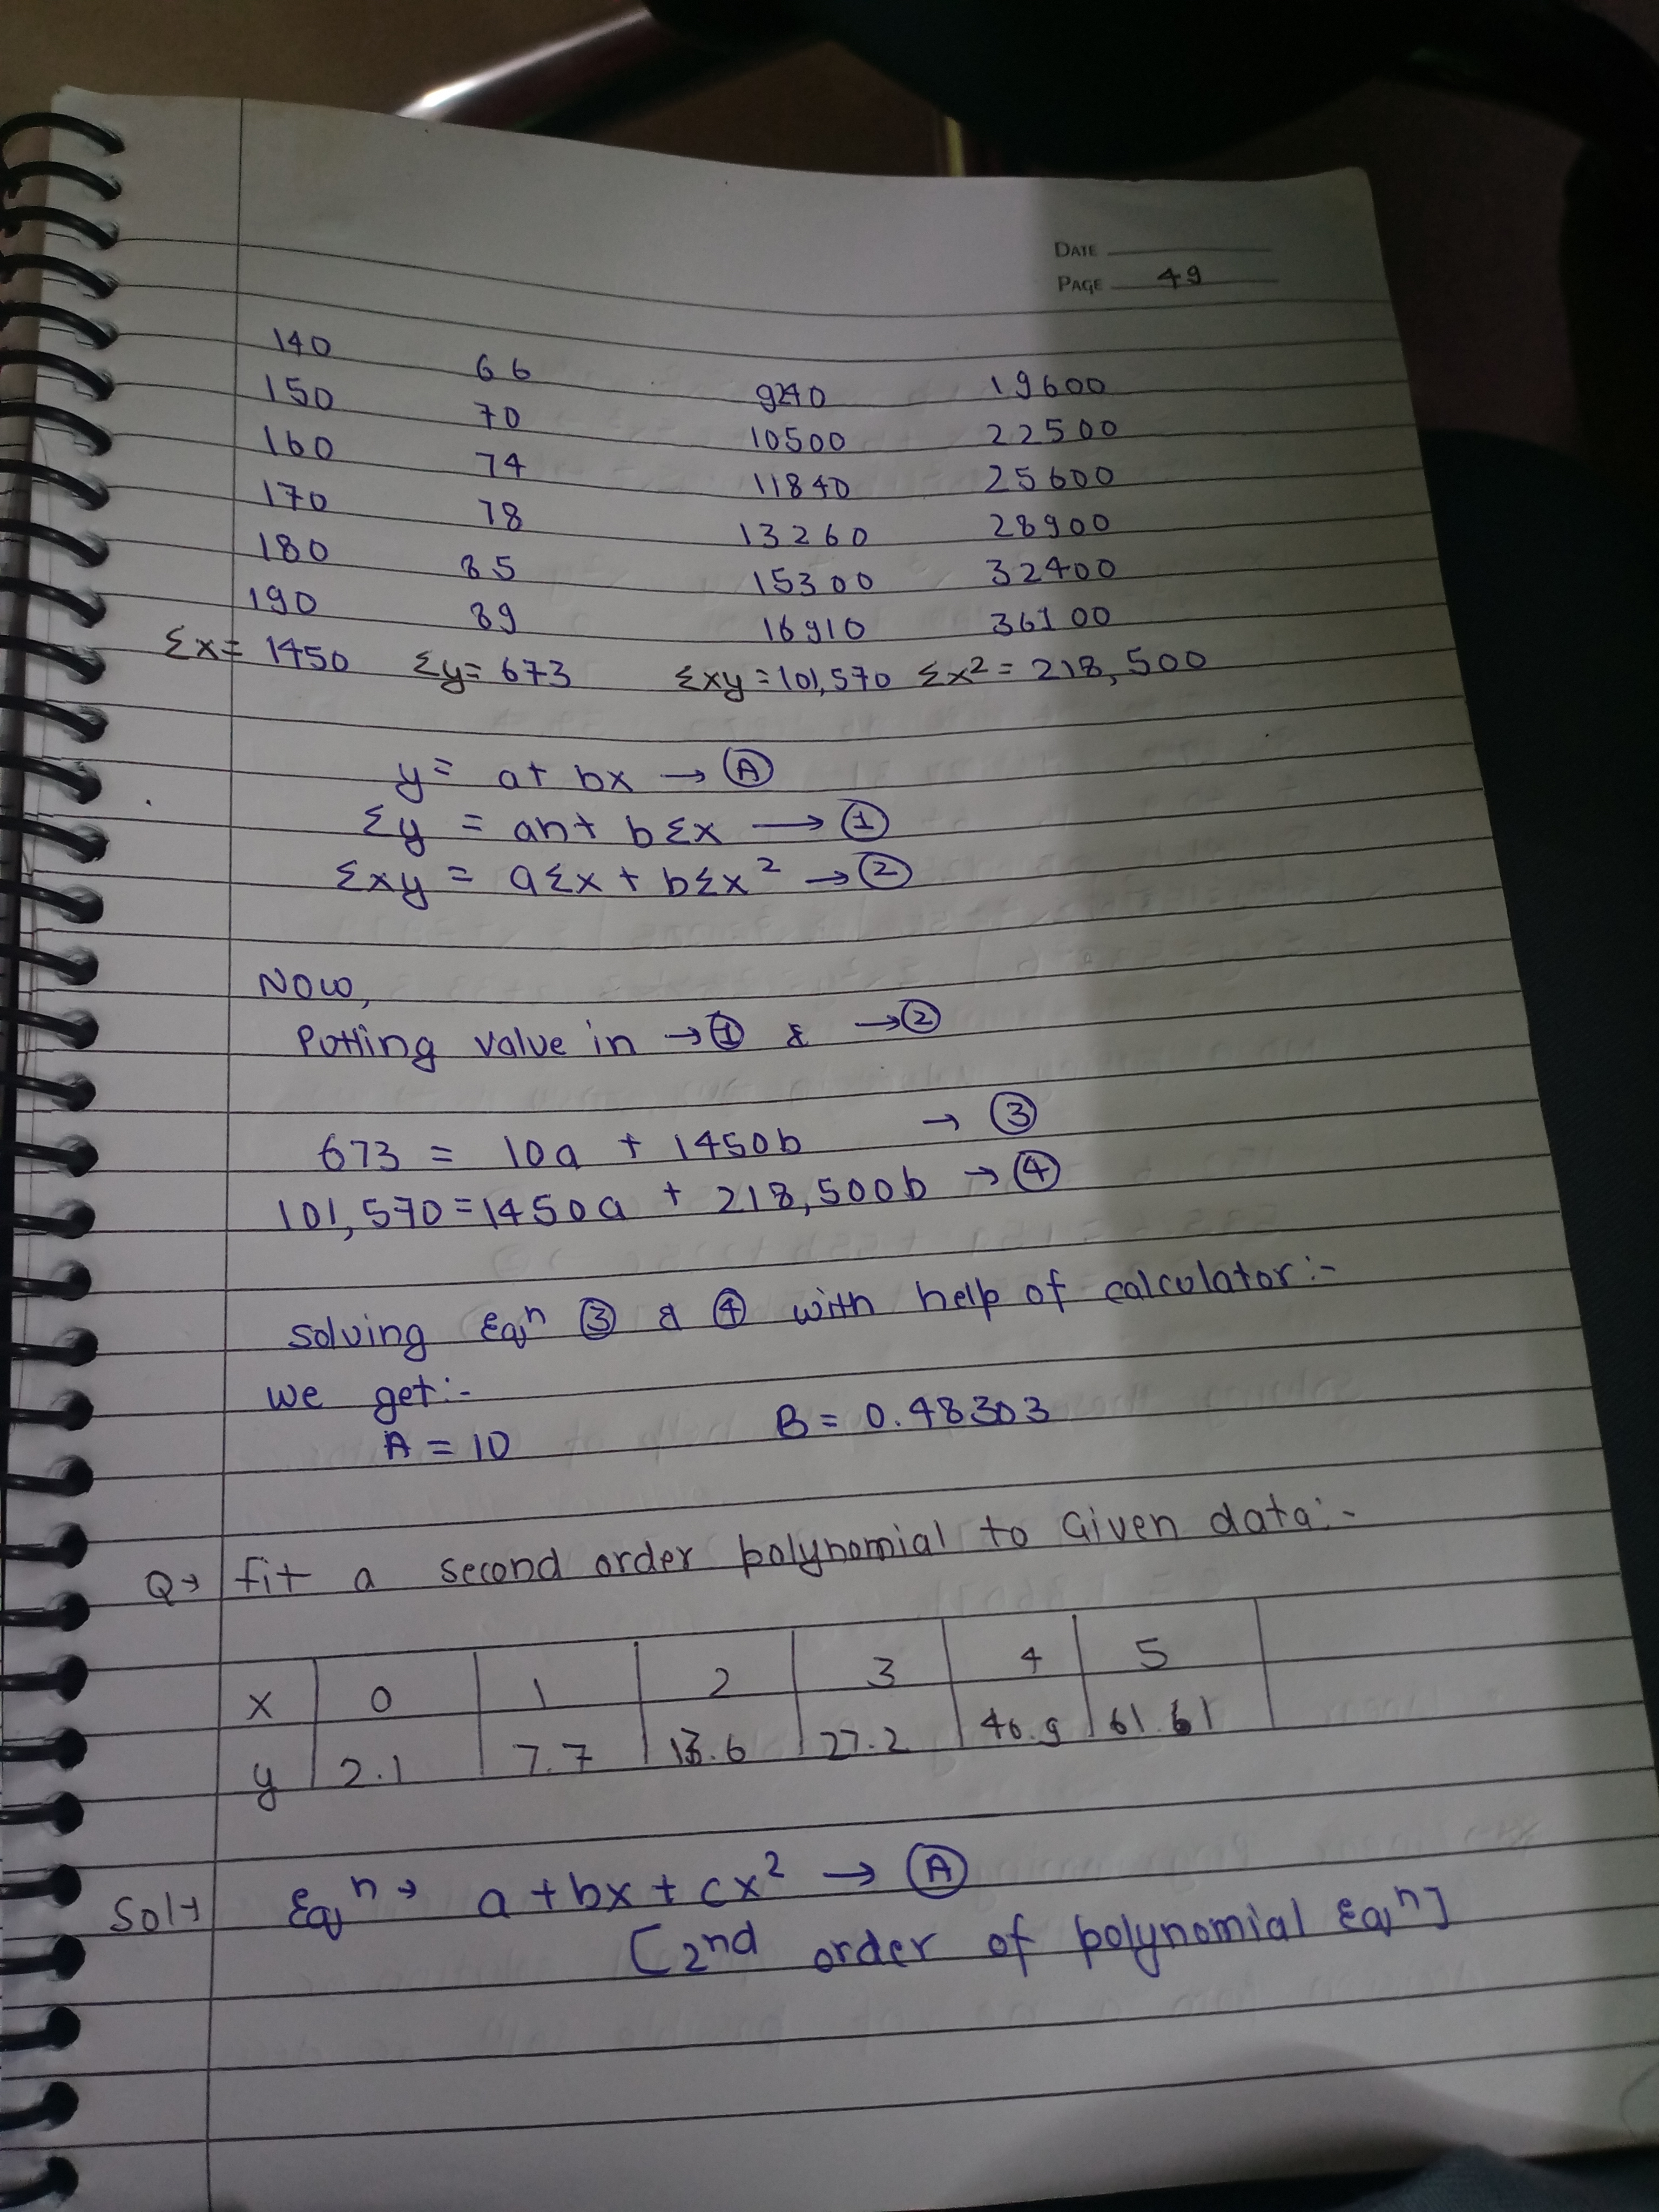 DATE
PAGE 49
140 66 9240 19600
150 70 10500 22500
160 74 11840 25600
170 78 13260 28900
180 85 15300 32400
190 89 16910 36100
Σx= 1450 Σy= 673 Σxy = 101,570 Σx² = 218,500
y= a+ bx → Ⓐ
Σy = an+ bΣx → ①
Σxy = aΣx + bΣx² → ②
Now,
Putting value in → ① & → ②
673 = 10a + 1450b → ③
101,570 = 1450a + 218,500b → ④
solving Eqⁿ ③ & ④ with help of calculator:-
we get:-
A = 10 B = 0.48303
Q→ fit a second order polynomial to Given data:-
x 0 1 2 3 4 5
y 2.1 7.7 13.6 27.2 40.9 61.61
Sol→ Eqⁿ→ a + bx + cx² → Ⓐ
[2nd order of polynomial Eqⁿ]